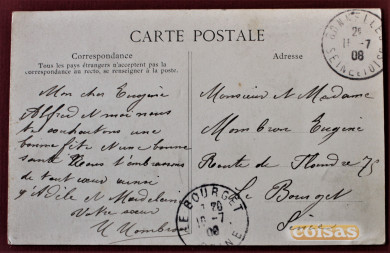 CARTE POSTALE
Correspondance
Tous les pays étrangers n'acceptent pas la
correspondance au recto, se renseigner à la poste.
Adresse
Mon cher Eugène
Alfred et moi nous
te souhaitons une
bonne fête et une bonne
santé nous t'embrassons
de tout cœur ainsi
q'Adèle et Madeleine
Votre sœur
Monsieur et Madame
Eugène
Route de Flandre 75
Le Bourget
Seine
LE BOURGET
SEINE
11 -7
08
coisas